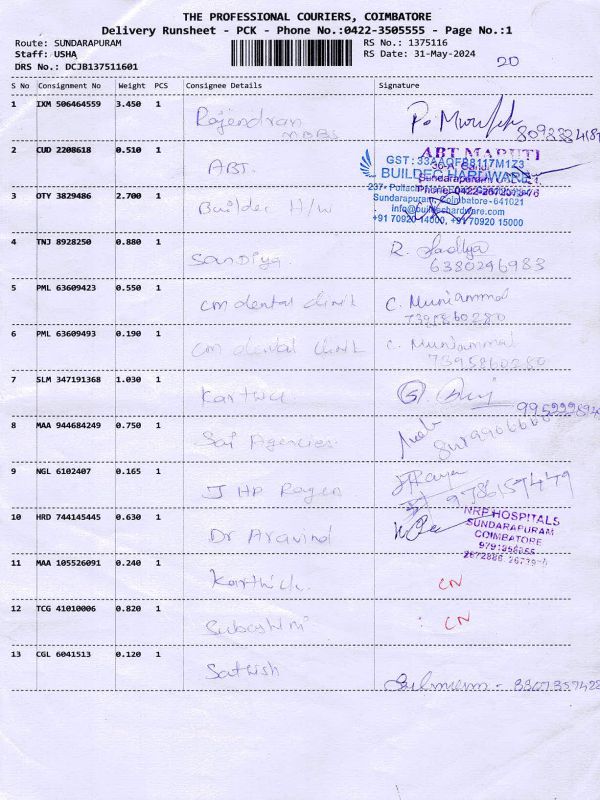 THE PROFESSIONAL COURIERS, COIMBATORE
Delivery Runsheet - PCK - Phone No.:0422-3505555 - Page No.:1
Route: SUNDARAPURAM
RS No.: 1375116
Staff: USHA
RS Date: 31-May-2024
DRS No.: DCJB137511601
20
S No Consignment No Weight PCS Consignee Details Signature
1 IXM 506464559 3.450 1 Rajendran
MBBS
2 CUD 2208618 0.510 1 ABT.
ABT MARUTI
GST : 33AAQFB8117M1Z3
BUILDEC HARDWARE
Sundarapuram
Phone:0422-2672075-76
Sundarapuram, Coimbatore - 641021
info@buildechardware.com
+91 70920 14000, +91 70920 15000
3 OTY 3829486 2.700 1 Buildec H/W
4 TNJ 8928250 0.880 1 Sandiya. R. Sadiya
6380296983
5 PML 63609423 0.550 1 cm dental clinik C. Muniammal
7395860280
6 PML 63609493 0.190 1 cm dental clinik C. Muniammal
7395860280
7 SLM 347191368 1.030 1
8 MAA 944684249 0.750 1 Sai Agencies.
9 NGL 6102407 0.165 1 J HP Rogen
9786157449
10 HRD 744145445 0.630 1 Dr Aravind
NRP HOSPITALS
SUNDARAPURAM
COIMBATORE
11 MAA 105526091 0.240 1 Karthick. CN
12 TCG 41010006 0.820 1 CN
13 CGL 6041513 0.120 1 Sathish